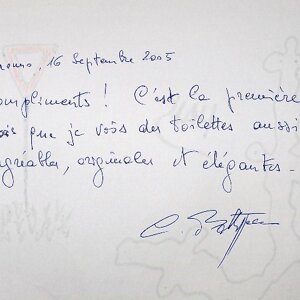 16 Septembre 2005
ompliments ! C'est la première
ois que je vois des toilettes aussi
gréables, originales et élégantes.